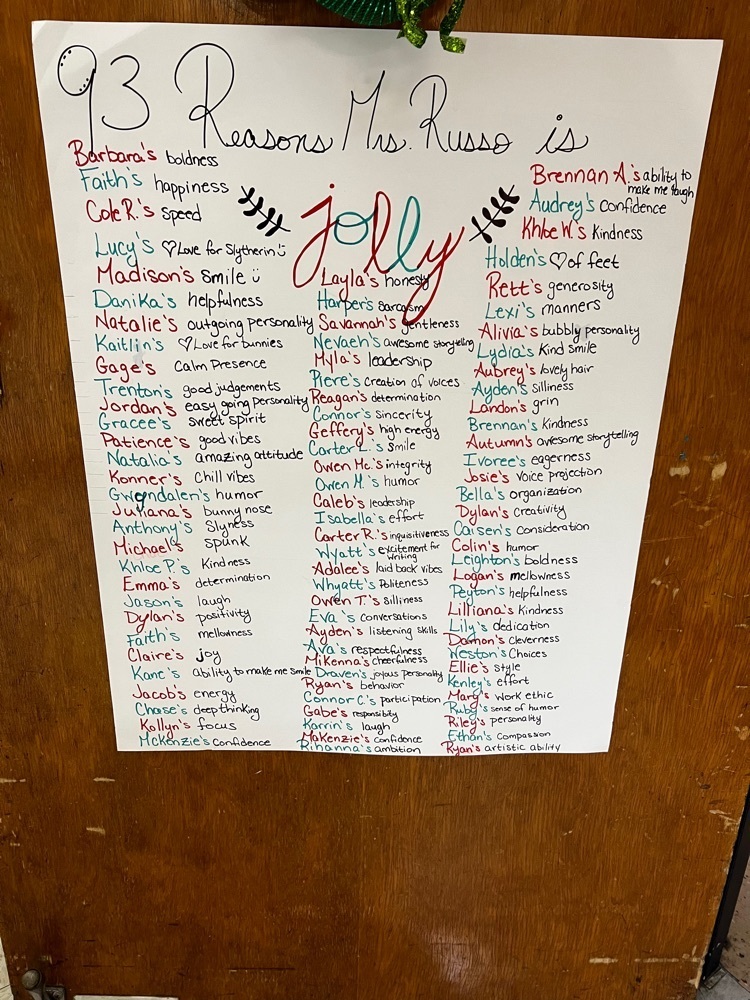 93 Reasons Mrs. Russo is
jolly
Barbara's boldness
Faith's happiness
Cole R.'s Speed
Lucy's ♡Love for Slytherin
Madison's Smile
Danika's helpfulness
Natalie's outgoing personality
Kaitlin's ♡Love for bunnies
Gage's Calm Presence
Trenton's good judgements
Jordan's easy going personality
Gracee's sweet spirit
Patience's good vibes
Natalia's amazing attitude
Konner's Chill vibes
Gwyndalen's humor
Juliana's bunny nose
Anthony's Slyness
Michael's spunk
Khloe P.'s Kindness
Emma's determination
Jason's laugh
Dylan's positivity
Faith's mellowness
Claire's joy
Kane's ability to make me smile
Jacob's energy
Chase's deep thinking
Kollyn's focus
McKenzie's Confidence
Layla's honesty
Harper's sarcasm
Savannah's gentleness
Nevaeh's awesome storytelling
Myla's leadership
Piere's creation of voices
Reagan's determination
Connor's sincerity
Geffery's high energy
Carter L.'s Smile
Owen Mc.'s integrity
Owen M.'s humor
Caleb's leadership
Isabella's effort
Carter R.'s inquisitiveness
Wyatt's excitement for
writing
Adalee's laid back vibes
Whyatt's Politeness
Owen T.'s Silliness
Eva's conversations
Ayden's listening skills
Ava's respectfulness
Mikenna's cheerfulness
Draven's joyous personality
Ryan's behavior
Connor C.'s participation
Gabe's responsibility
Karrin's laugh
Makenzie's Confidence
Rihanna's ambition
Brennan A.'s ability to
make me laugh
Audrey's Confidence
Khloe W.'s Kindness
Holden's ♡of feet
Rett's generosity
Lexi's manners
Alivia's bubbly personality
Lydia's Kind smile
Aubrey's lovely hair
Ayden's silliness
Landon's grin
Brennan's Kindness
Autumn's awesome storytelling
Ivoree's eagerness
Josie's Voice projection
Bella's organization
Dylan's Creativity
Caisen's Consideration
Colin's humor
Leighton's boldness
Logan's mellowness
Peyton's helpfulness
Lilliana's Kindness
Lily's dedication
Damon's Cleverness
Weston's Choices
Ellie's style
Kenley's effort
Mary's work ethic
Ruby's sense of humor
Riley's personality
Ethan's Compassion
Ryan's artistic ability